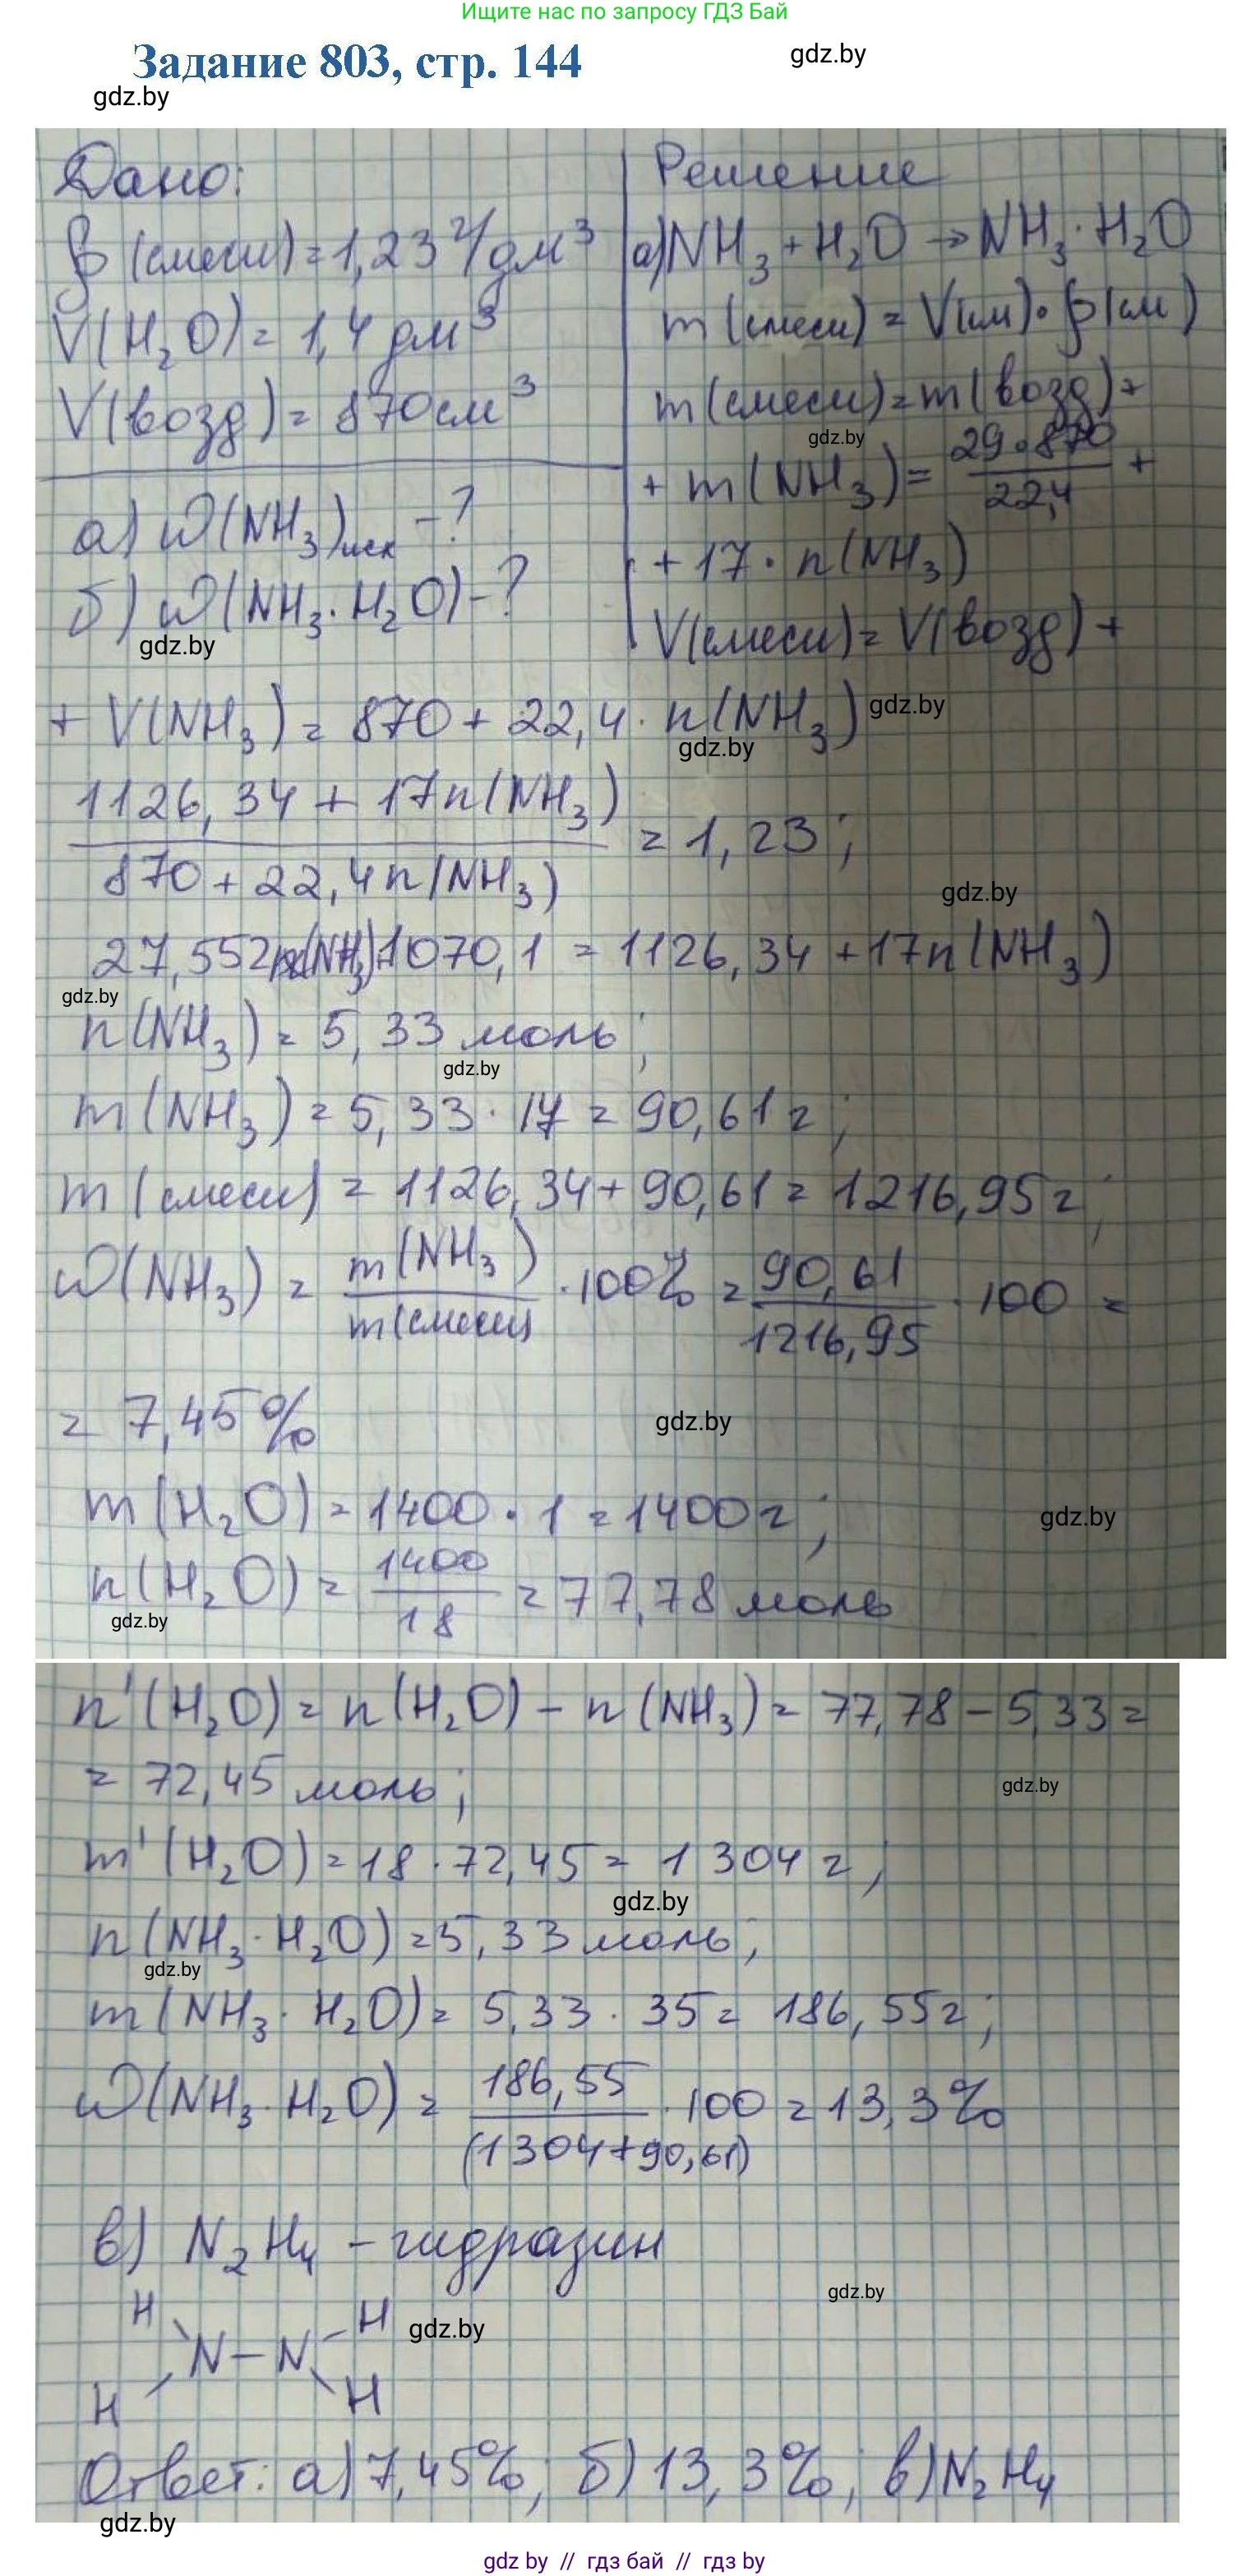 Ищите нас по запросу ГДЗ Бай
Задание 803, стр. 144
gdz.by
gdz.by
Дано:
ρ(смеси)=1,23 г/дм³
V(H₂O)=1,4 дм³
V(возд)=870см³
а) ω(NH₃)исх -?
б) ω(NH₃·H₂O)-?
gdz.by
Решение
а)NH₃+H₂O→NH₃·H₂O
m(смеси)=V(см)·ρ(см)
m(смеси)=m(возд)+
gdz.by
+m(NH₃)=29·870/22,4+
+17·n(NH₃)
V(смеси)=V(возд)+
+V(NH₃)=870+22,4·n(NH₃)
gdz.by
gdz.by
1126,34+17n(NH₃)/870+22,4n(NH₃)=1,23;
gdz.by
27,552n(NH₃)+1070,1=1126,34+17n(NH₃)
gdz.by
n(NH₃)=5,33 моль;
gdz.by
m(NH₃)=5,33·17=90,61г;
m(смеси)=1126,34+90,61=1216,95г;
ω(NH₃)=m(NH₃)/m(смеси)·100%=90,61/1216,95·100=
=7,45%
gdz.by
m(H₂O)=1400·1=1400г;
gdz.by
n(H₂O)=1400/18=77,78 моль
gdz.by
n'(H₂O)=n(H₂O)-n(NH₃)=77,78-5,33=
=72,45 моль;
gdz.by
m'(H₂O)=18·72,45=1304г;
gdz.by
n(NH₃·H₂O)=5,33 моль;
gdz.by
m(NH₃·H₂O)=5,33·35=186,55г;
ω(NH₃·H₂O)=186,55/(1304+90,61)·100=13,3%
в) N₂H₄ - гидразин
gdz.by
H H
gdz.by
N-N
H H
Ответ: а)7,45%; б)13,3%; в)N₂H₄
gdz.by
gdz by // гдз бай // гдз by